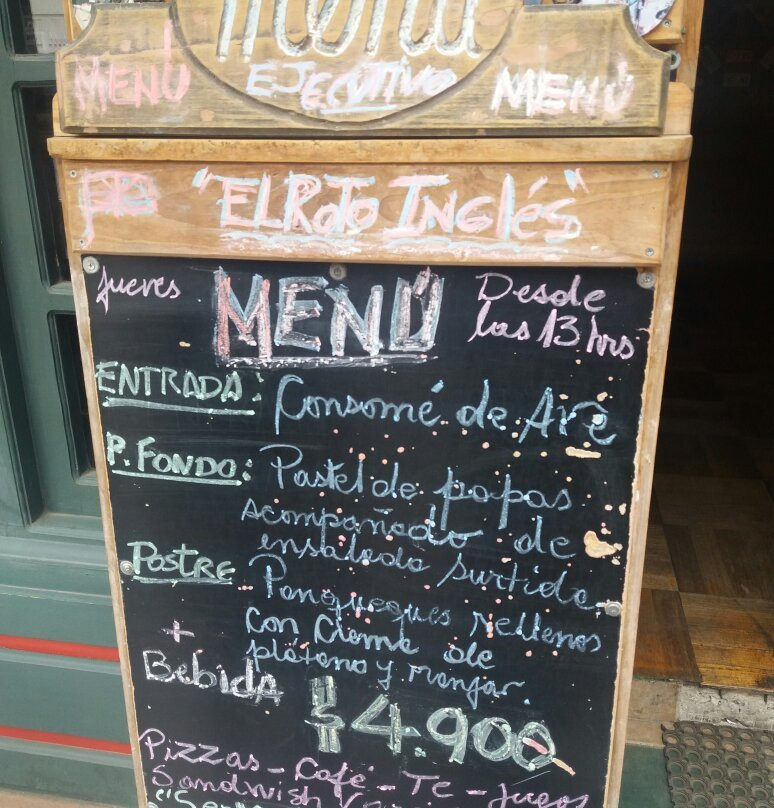 Menú
MENÚ EJECUTIVO MENÚ
"EL ROTO INGLÉS"
Jueves MENÚ Desde
las 13 hrs
ENTRADA: Consomé de Ave
P. FONDO: Pastel de papas
acompañado de
ensalada surtida
POSTRE Panqueques rellenos
con crema de
plátano y manjar.
+
Bebida $4.900
Pizzas - Café - Te - Jugos
Sandwish